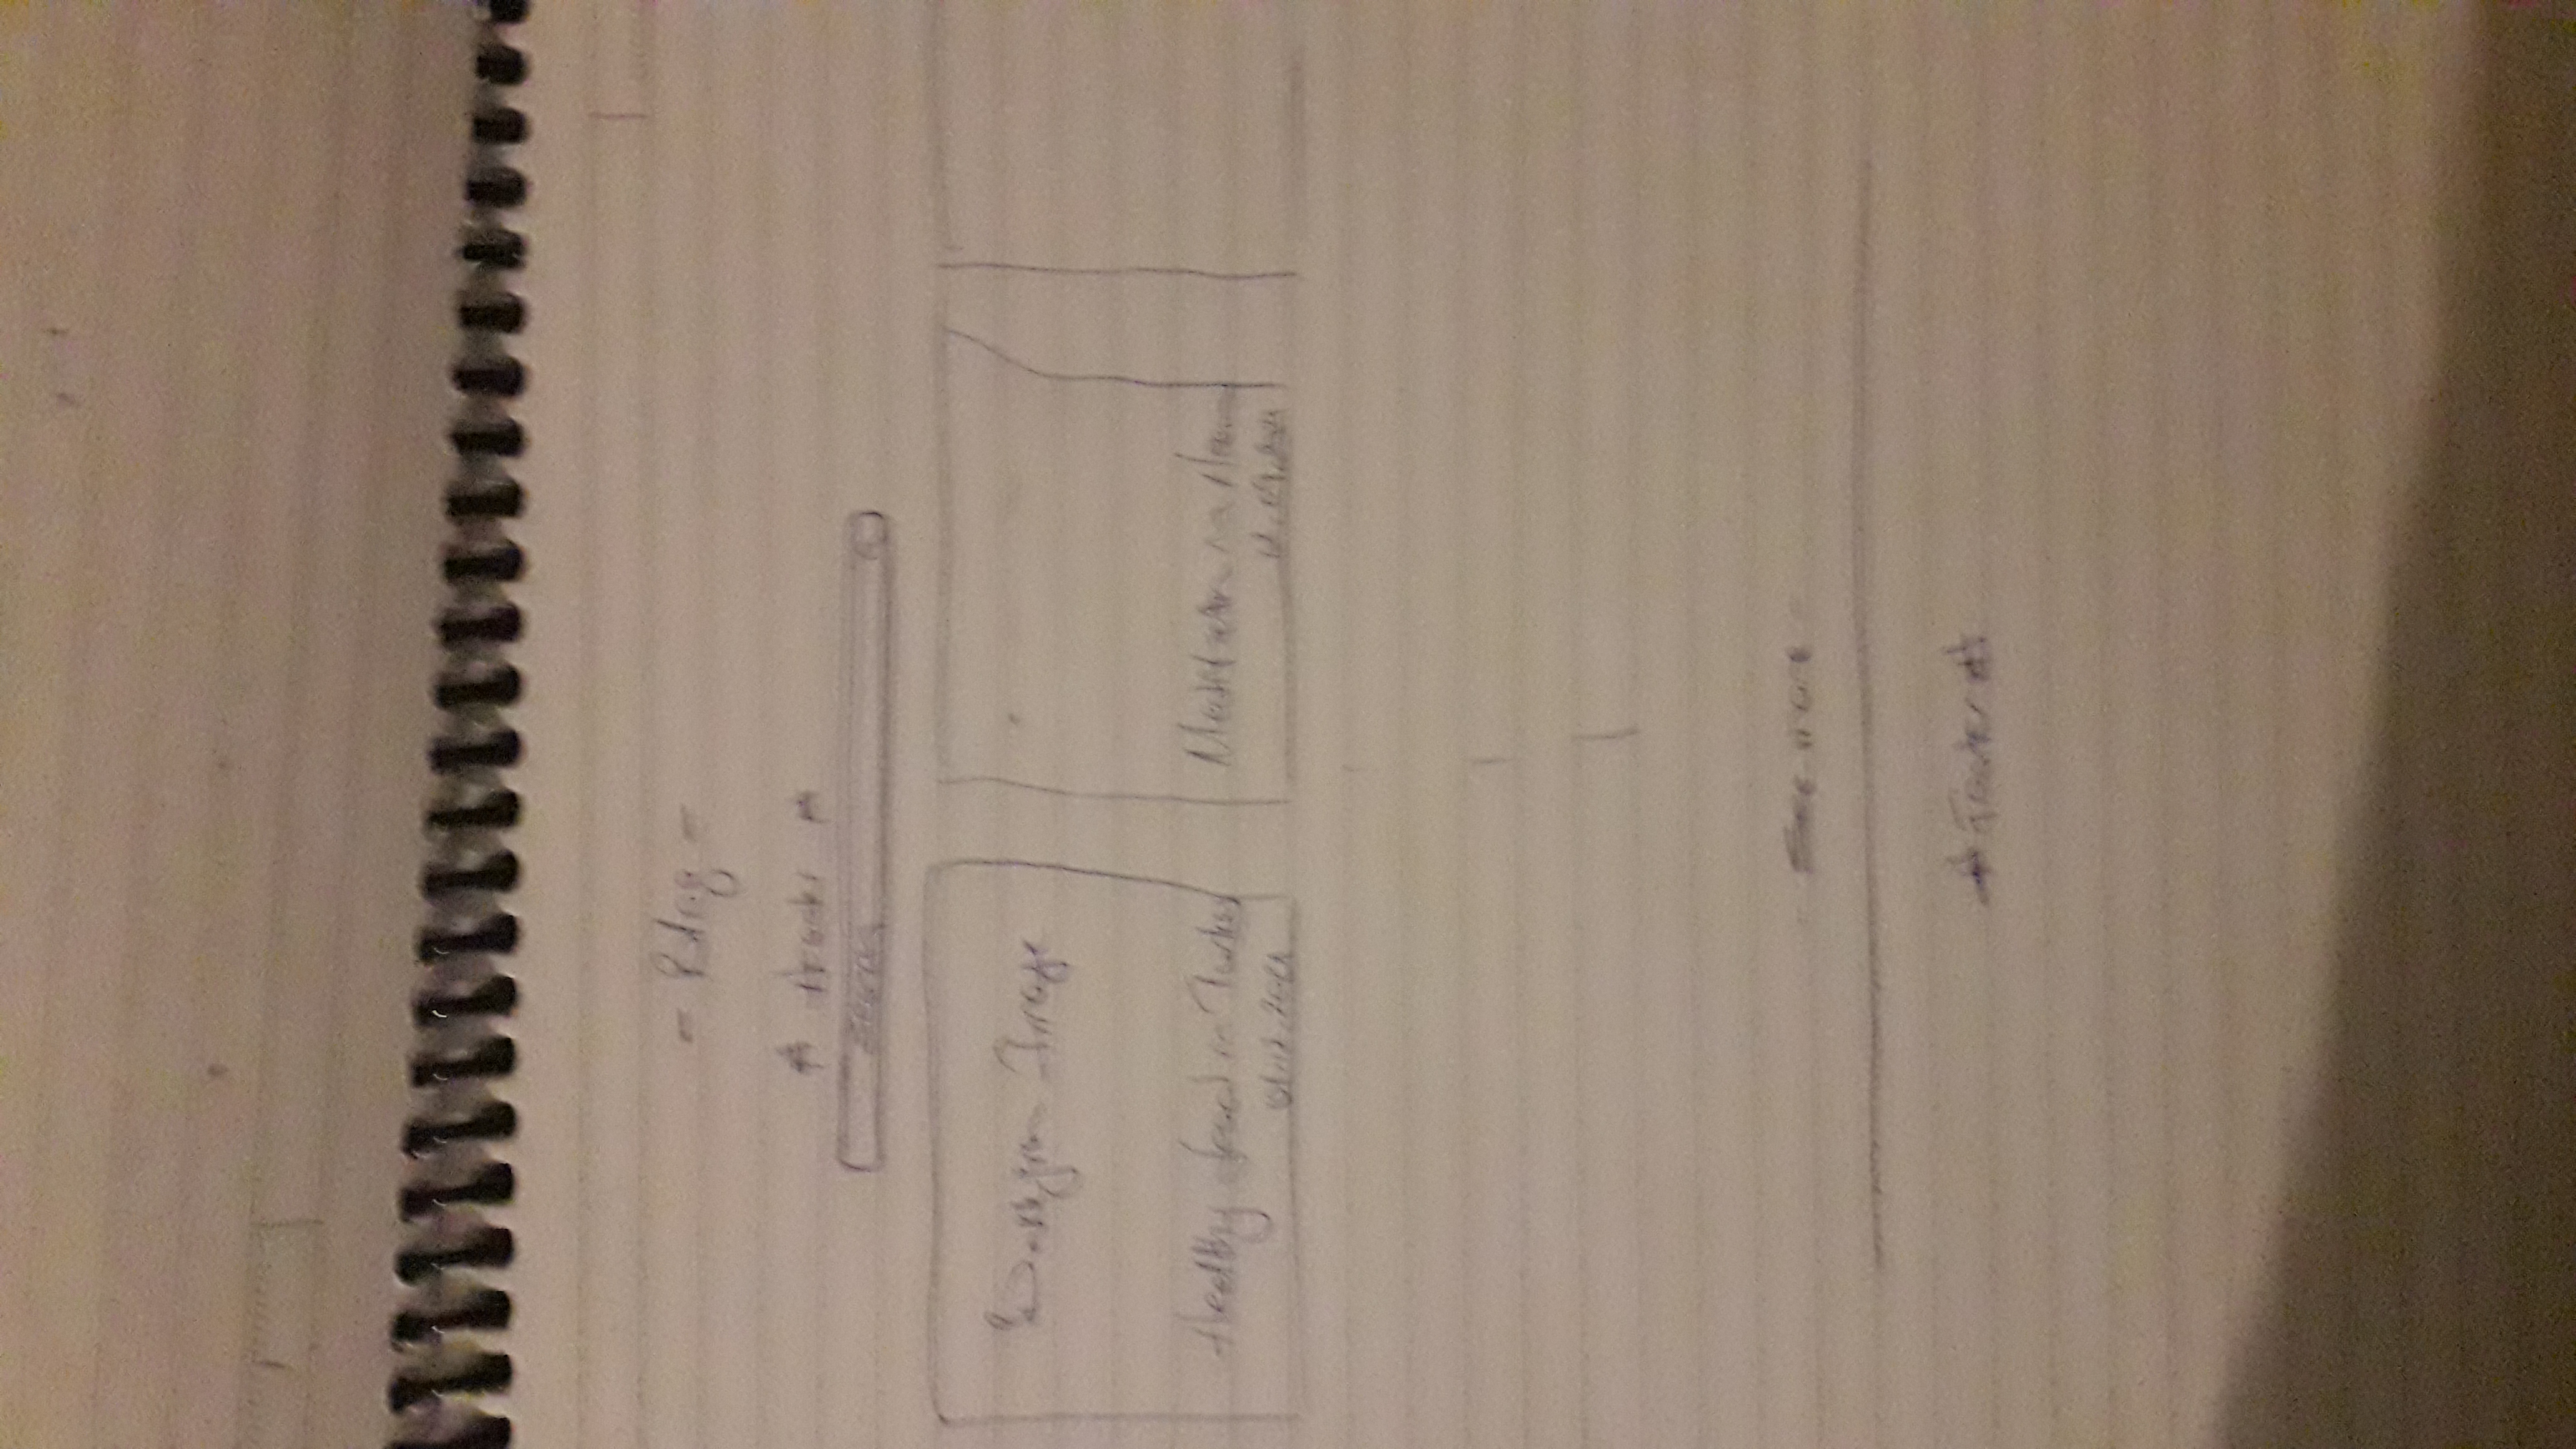 - Blog -
# Header #
Search
Image
Healthy food in Turkey
01.12.2021
Meditation
See more
# Footer #